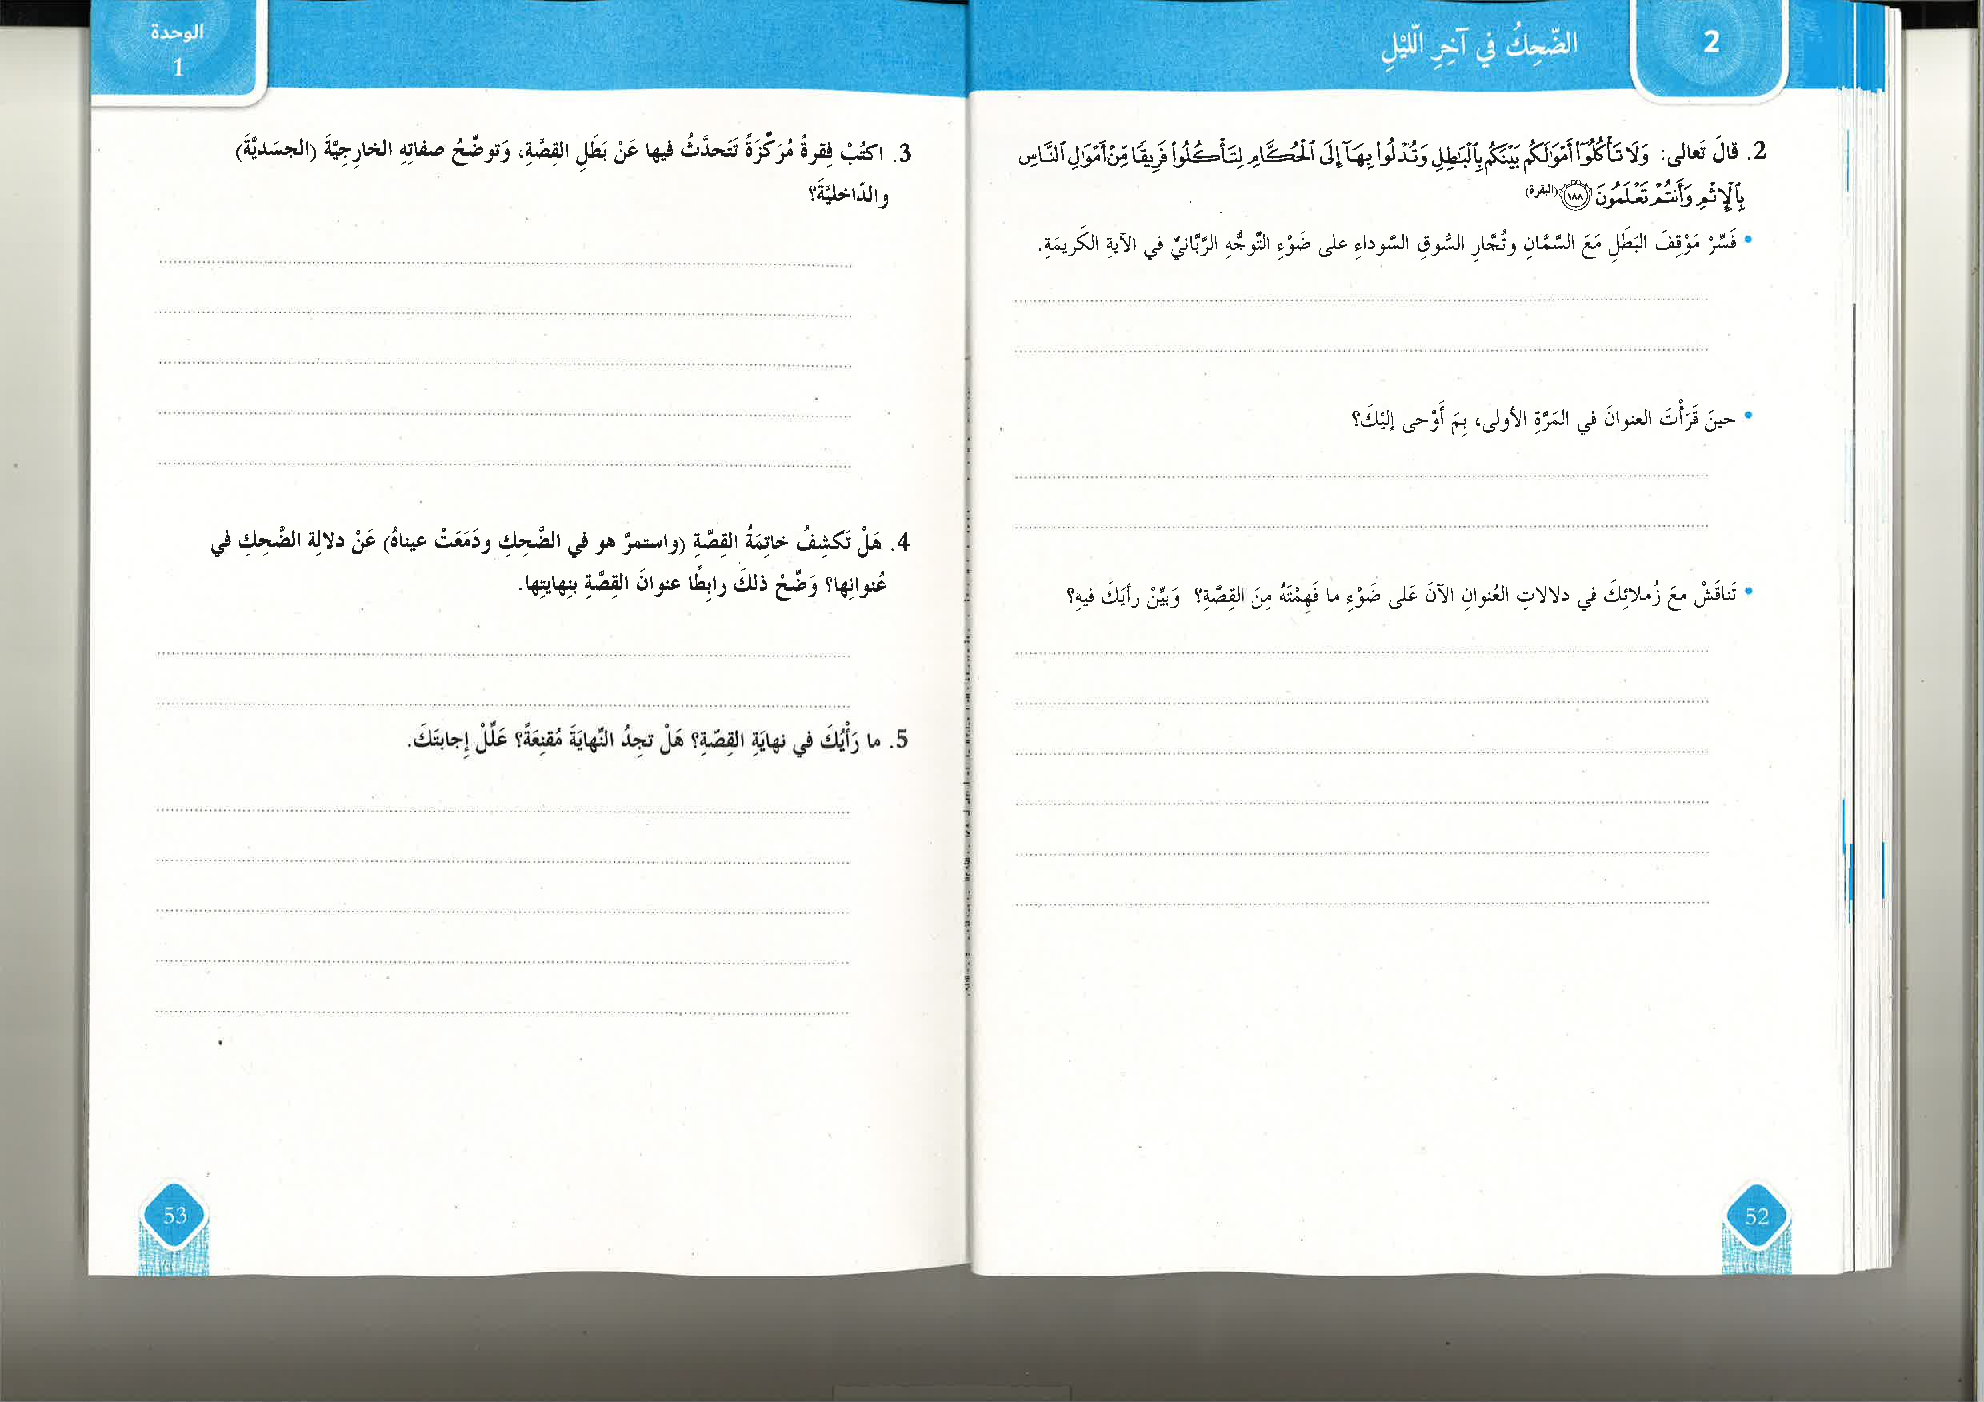 2
الضّحِكُ في آخِرِ اللّيْلِ
2. قالَ تَعالى: وَلَا تَأْكُلُوٓا۟ أَمْوَٰلَكُم بَيْنَكُم بِٱلْبَٰطِلِ وَتُدْلُوا۟ بِهَآ إِلَى ٱلْحُكَّامِ لِتَأْكُلُوا۟ فَرِيقًا مِّنْ أَمْوَٰلِ ٱلنَّاسِ
بِٱلْإِثْمِ وَأَنتُمْ تَعْلَمُونَ ﴿١٨٨﴾ (البقرة)
• فَسِّرْ مَوْقِفَ البَطَلِ مَعَ السَّمَّانِ وتُجَّارِ السُّوقِ السَّوداءِ على ضَوْءِ التَّوجُّهِ الرَّبَّانيِّ في الآيةِ الكَريمَةِ.
• حينَ قَرَأْتَ العنوانَ في المَرَّةِ الأولى، بِمَ أَوْحى إليْكَ؟
• تَناقَشْ معَ زُملائِكَ في دلالاتِ العُنوانِ الآنَ عَلى ضَوْءِ ما فَهِمْتَهُ مِنَ القِصَّةِ؟ وَبيِّنْ رأيَكَ فيهِ؟
52
الوحدة
1
3. اكتُبْ فِقرةً مُرَكَّزَةً تَتَحدَّثُ فيها عَنْ بَطَلِ القِصَّةِ، وَتوضِّحُ صفاتِهِ الخارجِيَّةَ (الجسَديَّةَ)
والدّاخليَّةَ؟
4. هَلْ تَكشِفُ خاتِمَةُ القِصَّةِ (واستمرَّ هو في الضَّحِكِ ودَمَعَتْ عيناهُ) عَنْ دلالِة الضَّحِكِ في
عُنوانِها؟ وَضِّحْ ذلكَ رابِطًا عنوانَ القِصَّةِ بنِهايتِها.
5. ما رَأْيُكَ في نهايَةِ القِصّةِ؟ هَلْ تجدُ النِّهايَةَ مُقنِعَةً؟ عَلِّلْ إجابتَكَ.
53